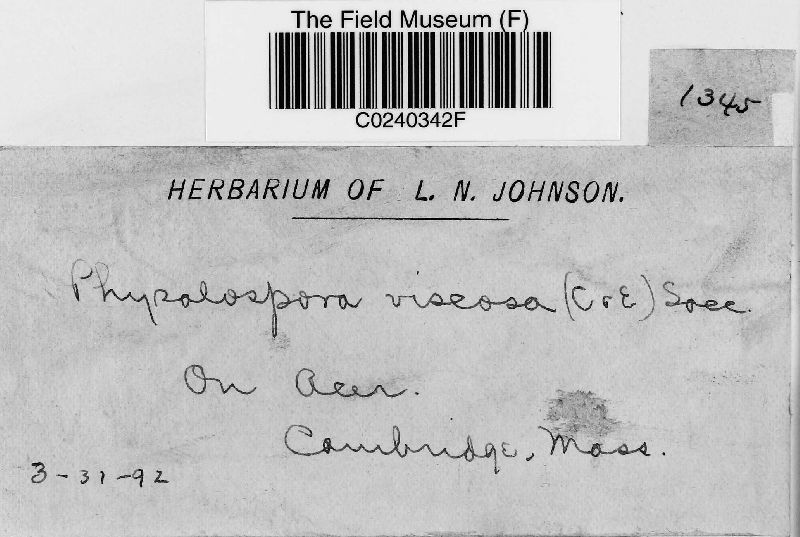 The Field Museum (F)
C0240342F
1345
HERBARIUM OF L. N. JOHNSON.
Physalospora viscosa (C & E) Sacc.
On Acer.
Cambridge, Mass.
3-31-92